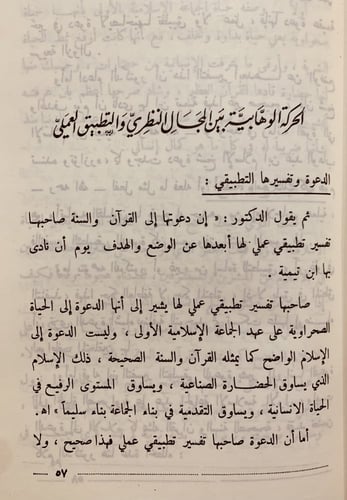 الحركة الوهابية بين المجال النظري والتطبيق العملي
الدعوة وتفسيرها التطبيقي :
ثم يقول الدكتور : « إن دعوتها إلى القرآن والسنة صاحبها
تفسير تطبيقي عملي لها أبعدها عن الوضع والهدف يوم أن نادى
بها ابن تيمية .
صاحبها تفسير تطبيقي عملي لها يشير إلى أنها الدعوة إلى الحياة
الصحراوية على عهد الجماعة الإسلامية الأولى ، وليست الدعوة إلى
الإسلام الواضح كما يمثله القرآن والسنة الصحيحة ، ذلك الإسلام
الذي يساوق الحضارة الصناعية ، ويساوق المستوى الرفيع في
الحياة الانسانية ، ويساوق التقدمية في بناء الجماعة بناء سليماً » اهـ.
أما أن الدعوة صاحبها تفسير تطبيقي عملي فهذا صحيح ، ولا
٥٧